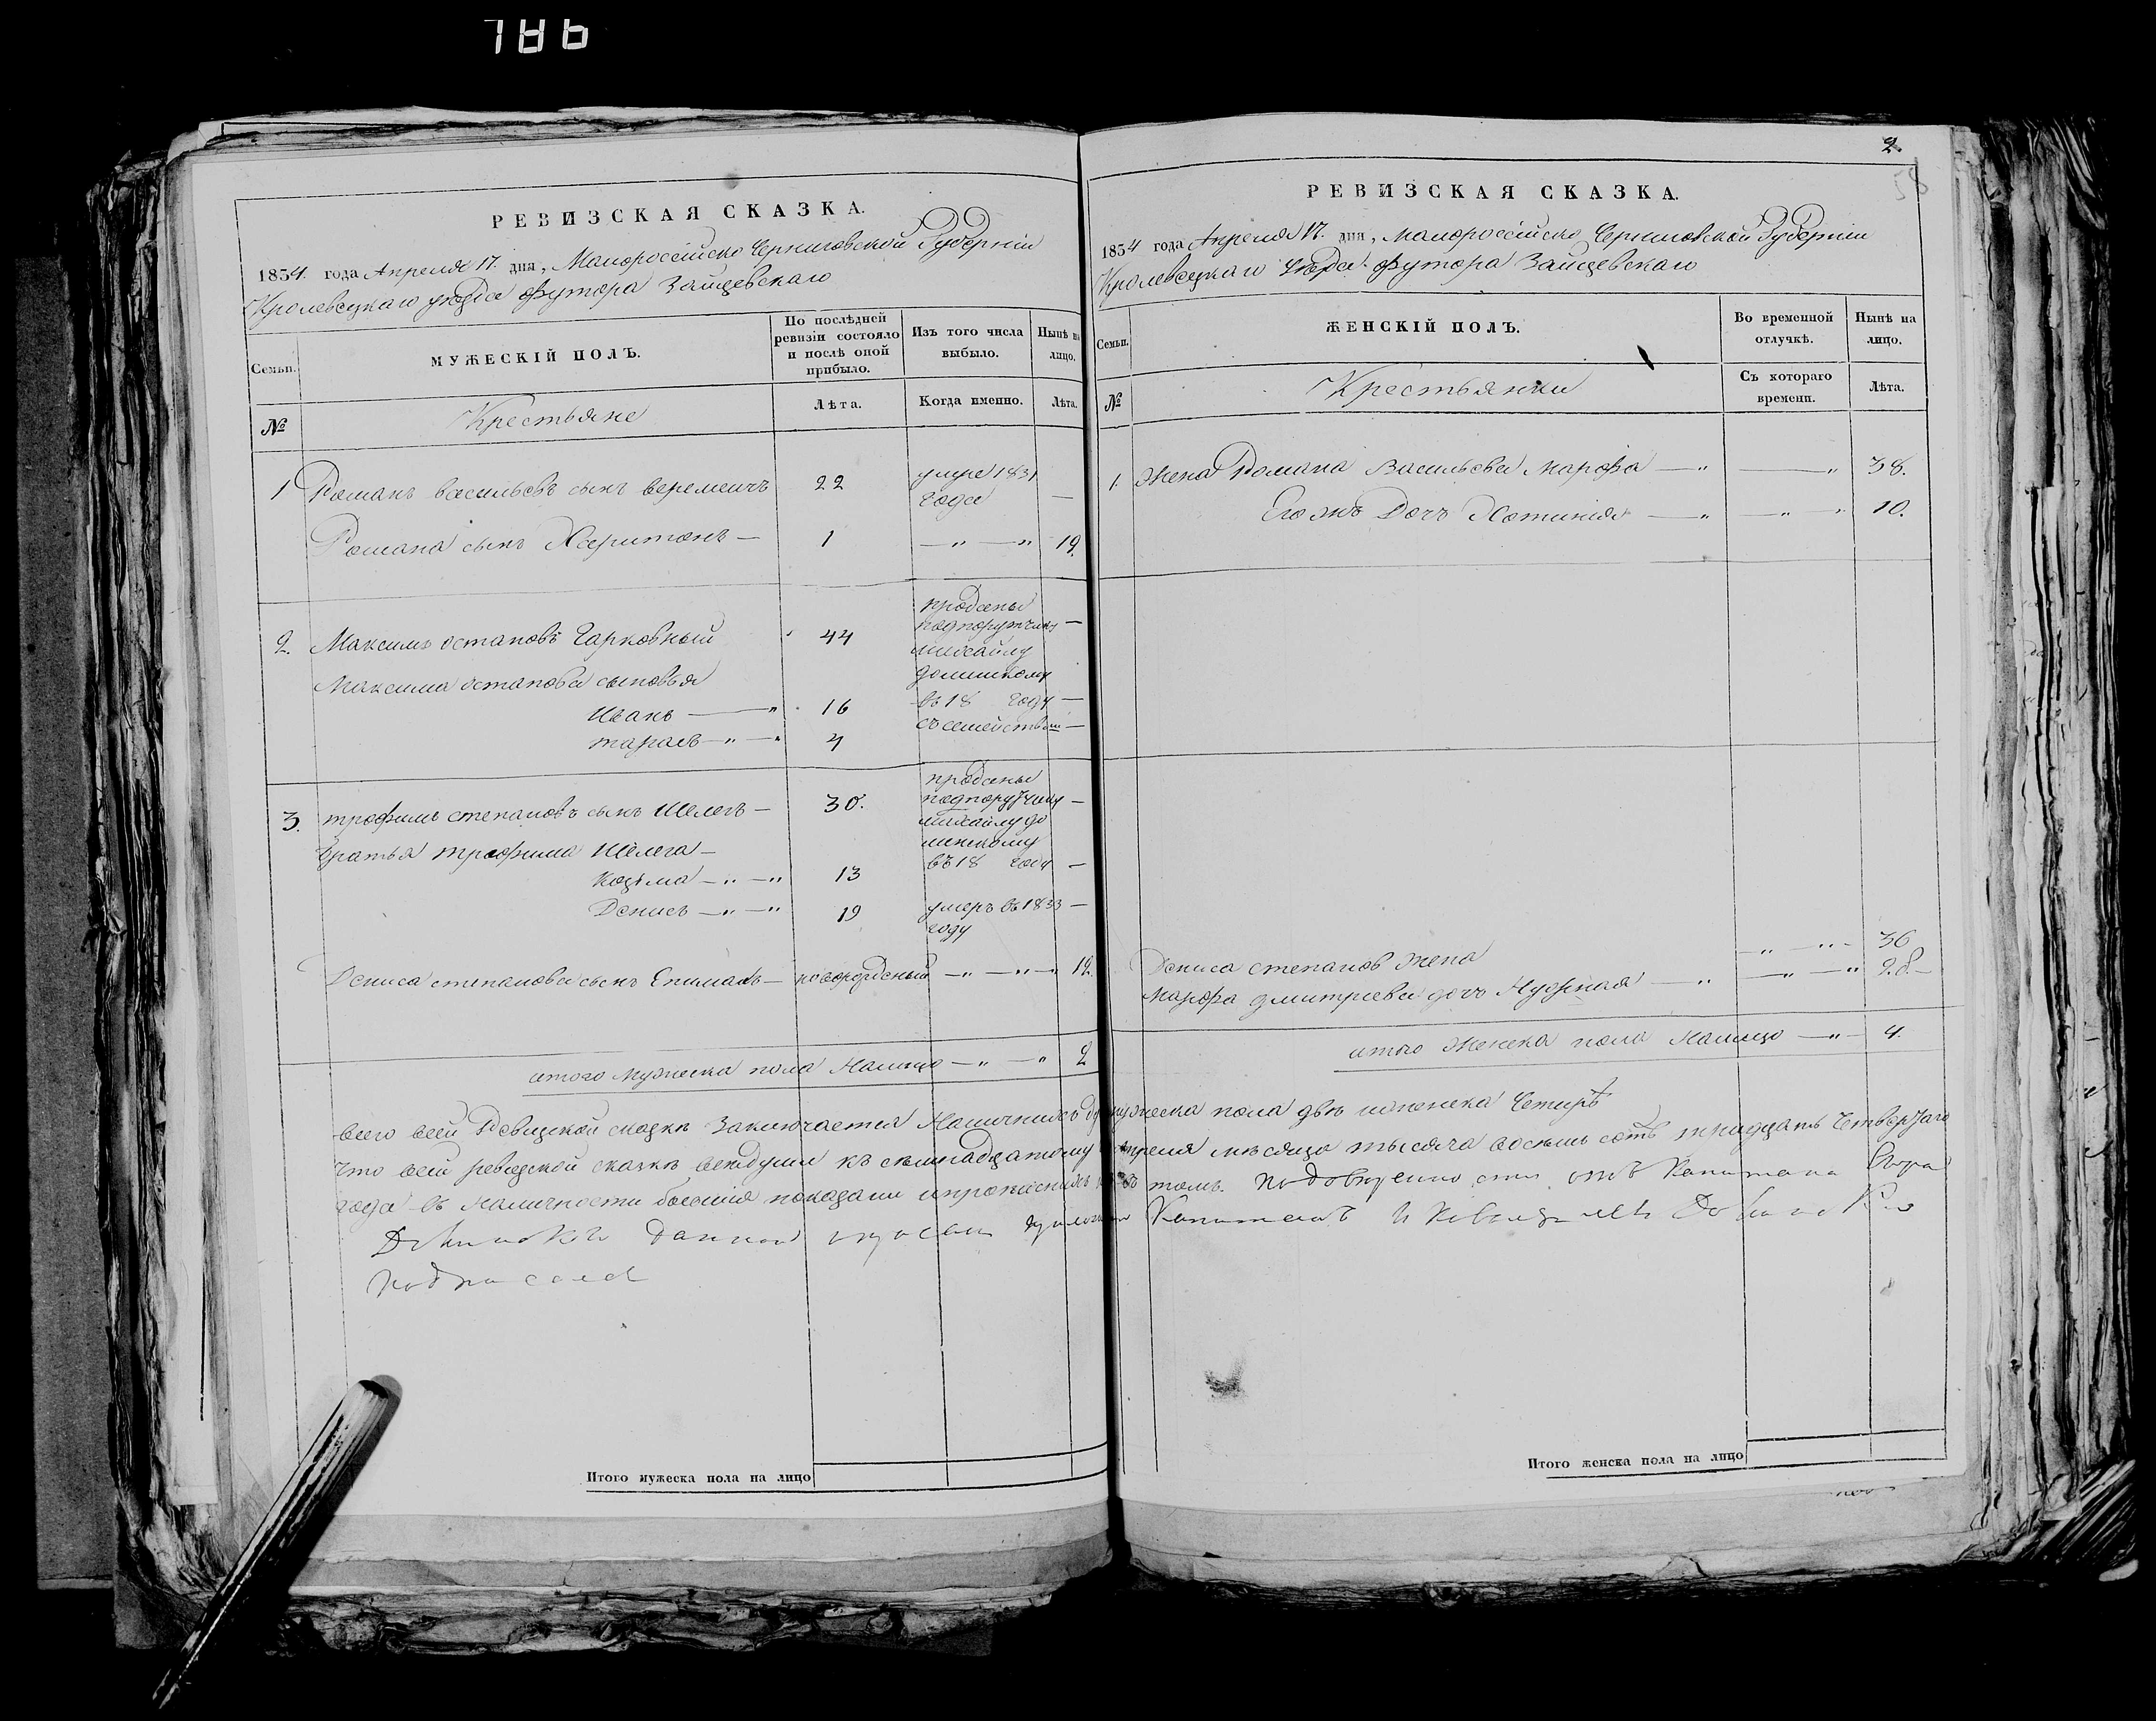 786
РЕВИЗСКАЯ СКАЗКА.
1834. года Апреля 17. дня, Малороссійско Черниговской Губерніи
Кролевецкаго уезда футора Зайцевскаго
Семьи.
МУЖЕСКІЙ ПОЛЪ.
По послѣдней ревизіи состояло и послѣ оной прибыло.
Изъ того числа выбыло.
Нынѣ на лицо.
№
Крестьяне
Лѣта.
Когда именно.
Лѣта.
1 Романъ васильевъ сынъ веремеичъ 22 умре 1831 года —
Романа сынъ Харитонъ — 1 — " — " 19.
2. Максимъ остаповъ Гарковный 44 проданы подпоручику —
михайлу
Максима остапова сыновья
Иванъ — " 16 въ 18 году —
тарасъ — " — " 4 съ семействам —
3. трофимъ степановъ сынъ Шелегъ — 30. проданы подпоручику —
михайлу до
братья трофима Шелега —
Козьма — " — " 13 въ 18 году —
Денисъ — " — " 19 умеръ въ 1833 —
году
Дениса степанова сынъ — новорожденый — " — " — " 12.
итого мужеска пола Налицо — " — " 2
Итого мужеска пола на лицо
2.
58
РЕВИЗСКАЯ СКАЗКА.
1834 года Апреля 17. дня, малороссійско Черниговской Губерніи
Кролевецкаго уезда футора Зайцевскаго
Семьи.
ЖЕНСКІЙ ПОЛЪ.
Во временной отлучкѣ.
Нынѣ на лицо.
№
Крестьянки
Съ котораго времени.
Лѣта.
1. Жена Романа Васильева Марфа — " — " 38.
Его жъ Дочъ Хотинія — " — " — " 10.
Дениса степанов жена — " — " — 36
Марфа дмитриева дочъ — " — " — " 28. —
итого Женска пола Налицо — " — 4.
всего всей Ревизской сказки Заключается Наличнихъ мужеска пола две женска Четире
Что всей ревизской сказки вседуши къ семнадцатому апреля месяца тысяча восемь сотъ тридцатъ Четвертаго
года въ Наличности бывшія показани томъ. по доверенно сти отъ Капитана
данной Капитанъ
подписалъ
Итого женска пола на лицо